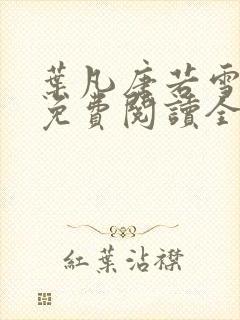 葉凡唐若雪
免費閱讀全
紅葉沾襟